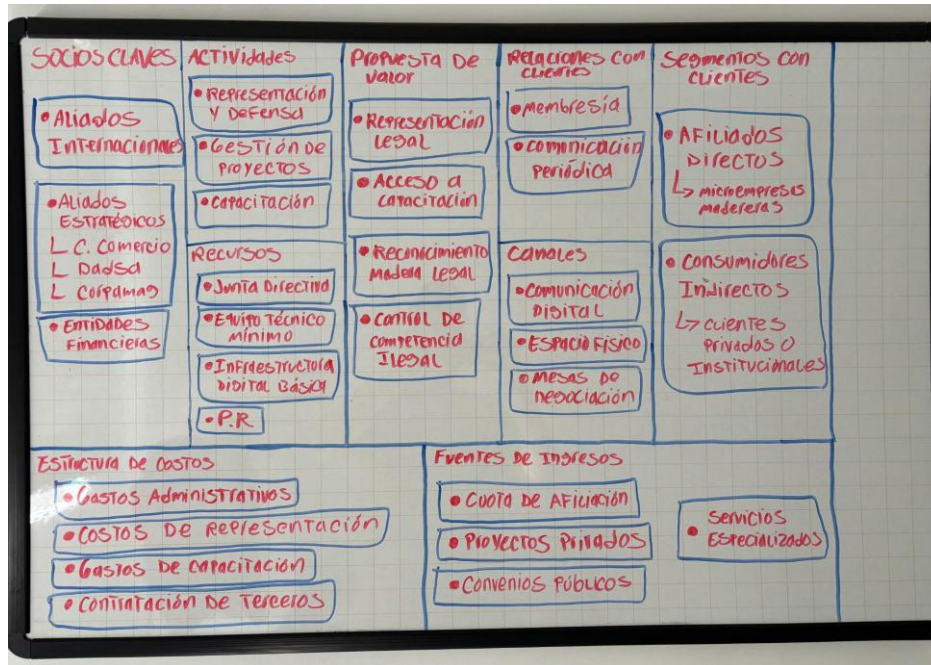 SOCIOS CLAVES
• Aliados
Internacionales
• Aliados
Estratégicos
L C. Comercio
L Dadsa
L Corpamag
• Entidades
Financieras
Actividades
• Representación
y Defensa
• Gestión de
Proyectos
• Capacitación
Recursos
• Junta Directiva
• Equipo Técnico
mínimo
• Infraestructura
Digital Básica
• P.R
Propuesta De
Valor
• Representación
Legal
• Acceso a
Capacitación
• Reconocimiento
Madera Legal
• Control De
Competencia
Ilegal
Relaciones con
clientes
• Membresía
• Comunicación
Periódica
Canales
• Comunicación
Digital
• Espacio Físico
• Mesas De
negociación
Segmentos con
clientes
• Afiliados
Directos
↳ microempresas
madereras
• Consumidores
Indirectos
↳ clientes
Privados o
Institucionales
Estructura de Costos
• Gastos Administrativos
• Costos De Representación
• Gastos De Capacitación
• Contratación De Terceros
Fuentes de Ingresos
• Cuota De Afiliación
• Proyectos Privados
• Convenios Públicos
• Servicios
Especializados